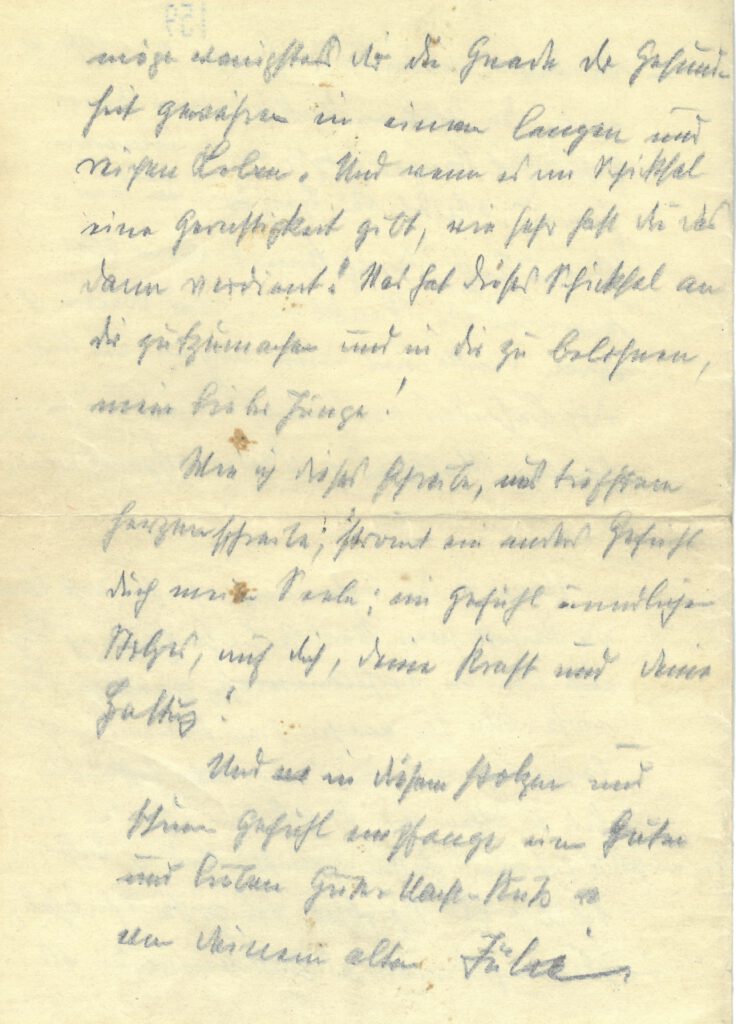 möge wenigstens dir die Gnade der Gesund-
heit gewähren in einem langen und
reichen Leben. Und wenn es im Schicksal
eine Gerechtigkeit gibt, wie sehr hast du das
dann verdient! Was hat dieses Schicksal an
dir gutzumachen und in dir zu belohnen,
mein lieber Junge!
Wie ich dieses schreibe, aus tiefstem
Herzen schreibe, strömt ein andres Gefühl
durch meine Seele: ein Gefühl unendlichen
Stolzes, auf dich, deine Kraft und deine
Haltung!
Und in diesem stolzen und
Gefühl empfange einen guten
und lieben Gute-Nacht-Kuß
von deinem alten